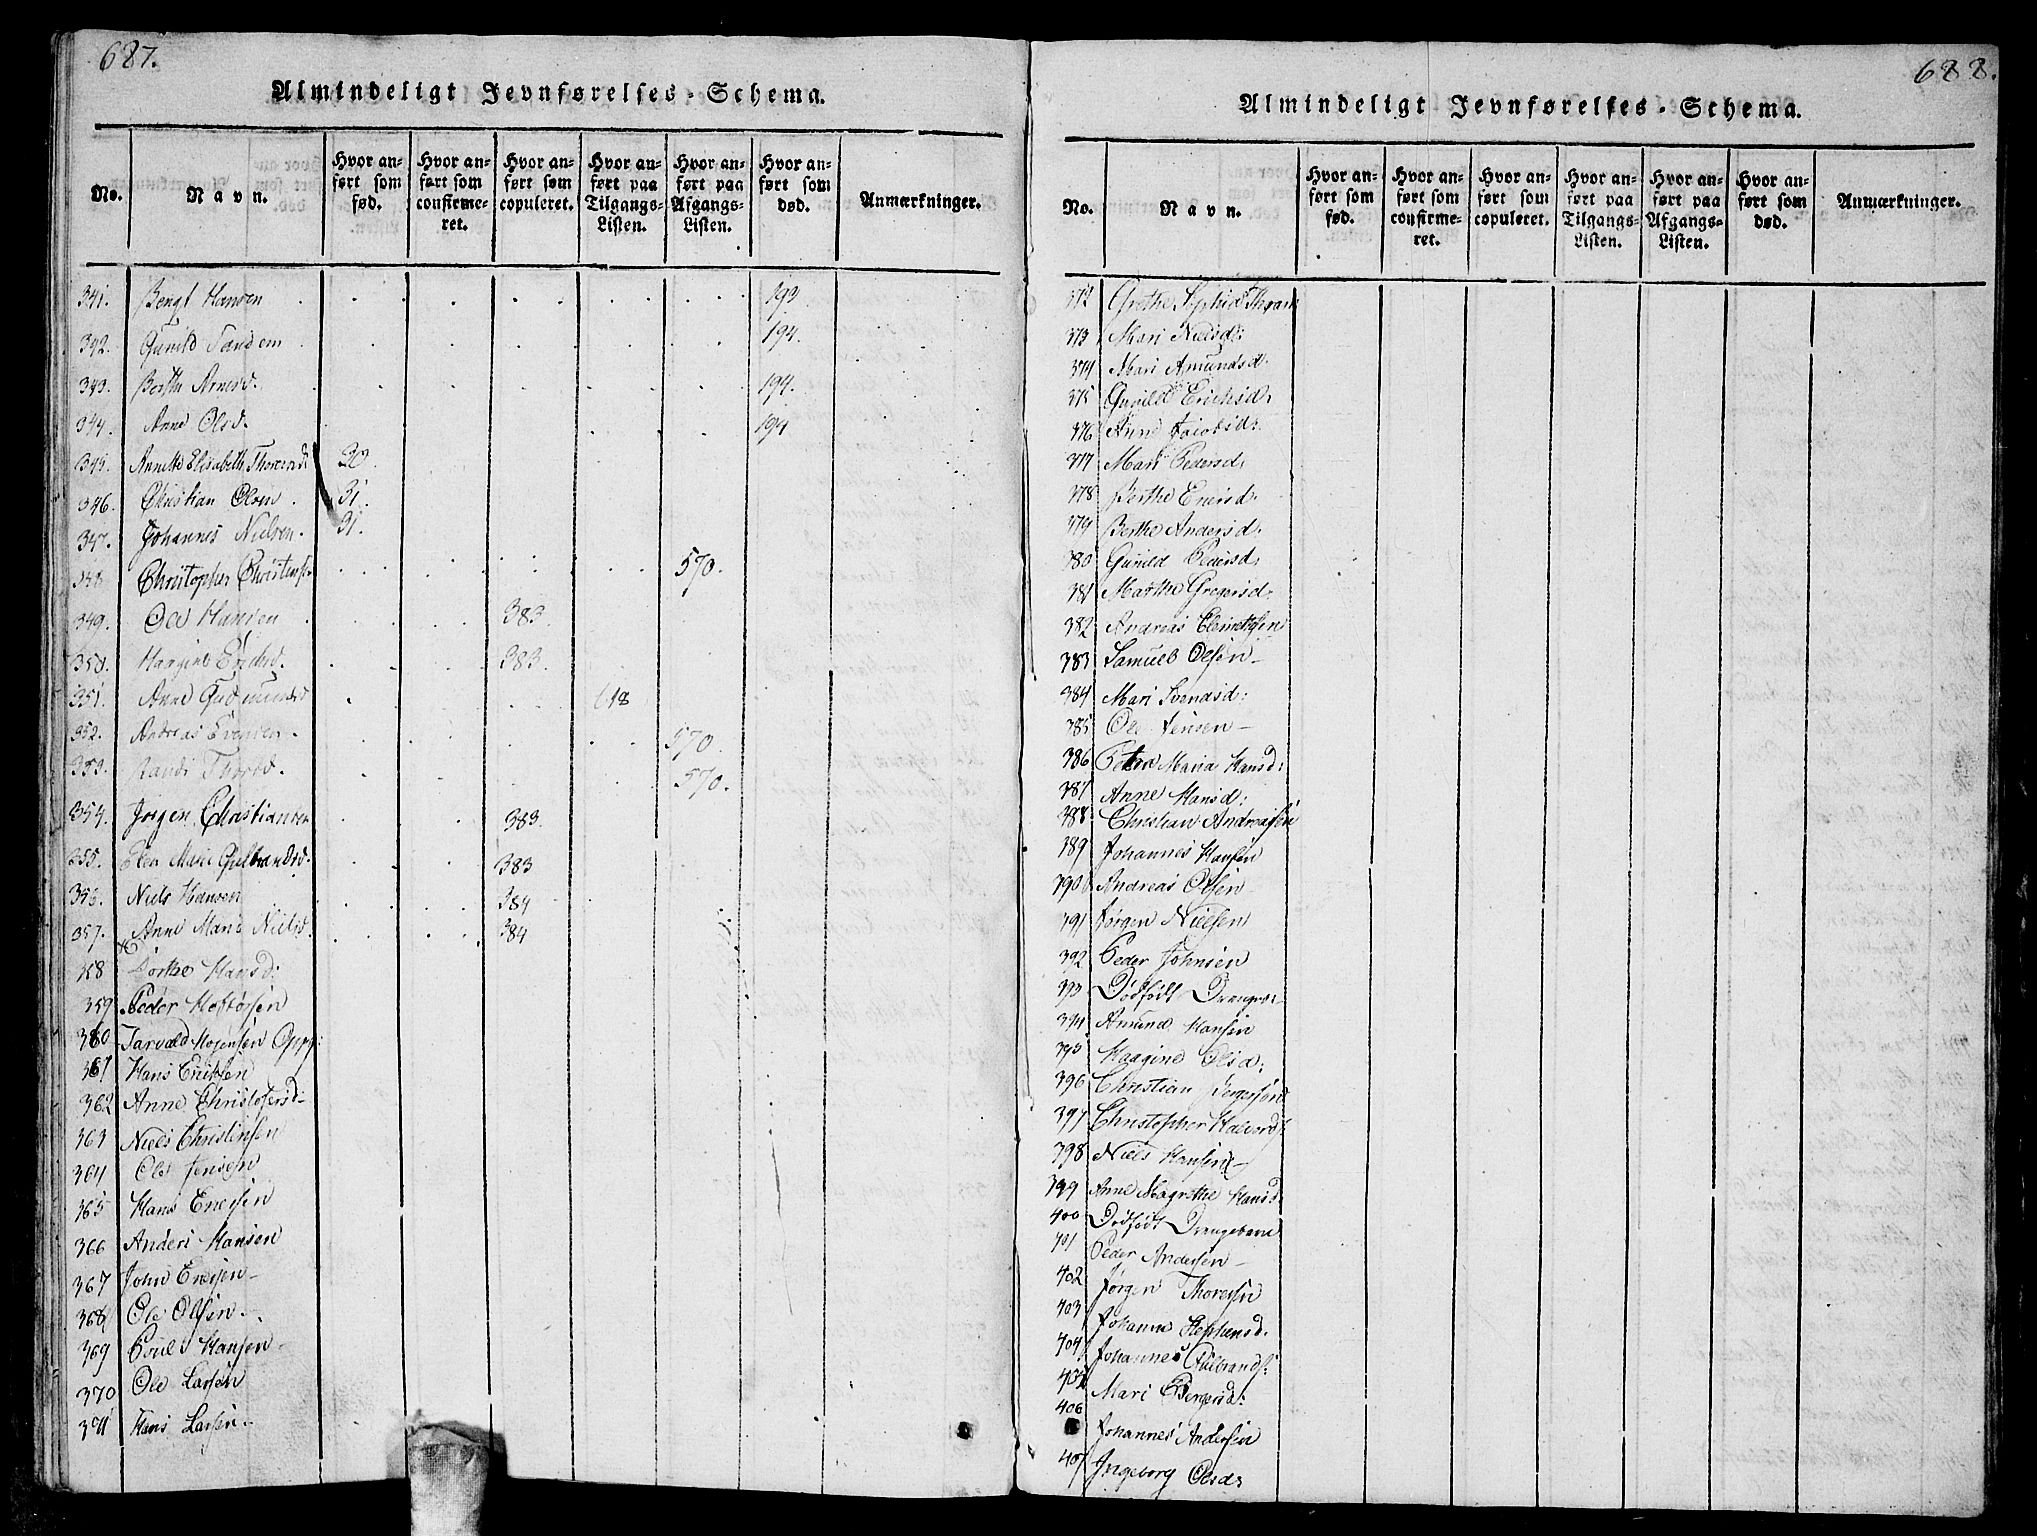 687.
Almindeligt Jevnførelses-Schema.
No. Navn. Hvor anført som fød. Hvor anført som confirmeret. Hvor anført som copuleret. Hvor anført paa Tilgangs-Listen. Hvor anført paa Afgangs-Listen. Hvor anført som død. Anmærkninger.
341. Bengt Hansen 193
342. Gunild Tandem 194.
343. Berthe Arnesd. 194.
344. Anne Olsd. 194
345. Annette Elisabeth Thoresd: 30.
346. Christian Olsen. 31.
347. Johannes Nielsen. 31.
348 Christopher Christens: 570.
349. Ole Hansen 383.
350. Haagine Endersd. 383.
351. Anne Gudmundsd 618
352. Andreas Evensen. 570.
353. Randi Thorsd. 570.
354. Jörgen Christiansen 383.
355. Elen Marie Gulbrandsd. 383
356. Niels Hansen 384
357. Anne Marie Nielsd. 384
358 Dorthe Hansd:
359 Peder
360 Tarvald Mogensen
361 Hans Eriksen
362 Anne Christofersd-
363 Niels Christensen
364 Ole Jensen
365 Hans Enersen
366 Anders Hansen
367 John Enersen-
368 Ole Olsen-
369 Poul Hansen-
370 Ole Larsen
371 Hans Larsen-
688.
Almindeligt Jevnførelses-Schema.
No. Navn. Hvor anført som fød. Hvor anført som confirmeret. Hvor anført som copuleret. Hvor anført paa Tilgangs-Listen. Hvor anført paa Afgangs-Listen. Hvor anført som død. Anmærkninger.
372 Grethe Sophie Thrane
373 Mari Nielsd:
374 Mari Amundsd.
375 Gunild Erichsd:
376 Anne Jacobsd:
377 Mari Pedersd:
378 Berthe Enersd.
379 Berthe Andersd.
380 Gunild Pedersd:
381 Marthe Gregersd.
382 Andreas Clemetsen
383 Samuel Olsen-
384 Mari Svendsd:
385 Ole Jensen-
386 Petra Maria Hansd:
387 Anne Hansd:
388 Christian Andreasen
389 Johannes Hansen
390 Andreas Olsen
391 Jørgen Nielsen
392 Peder Johnsen
393 Dødfødt
394 Amund Hansen
395 Haagine Olsd:
396 Christian Børgersen
397 Christopher Halvords:
398 Niels Hansen-
399 Anne Magrethe Hansd.
400 Dødfødt Drengebarn
401 Peder Andersen-
402 Jørgen Thoresen
403 Johanne Stephensd.
404 Johannes Gulbrands:
405 Mari Børgersd:
406 Johannes Andersen
407 Ingeborg Olsd: